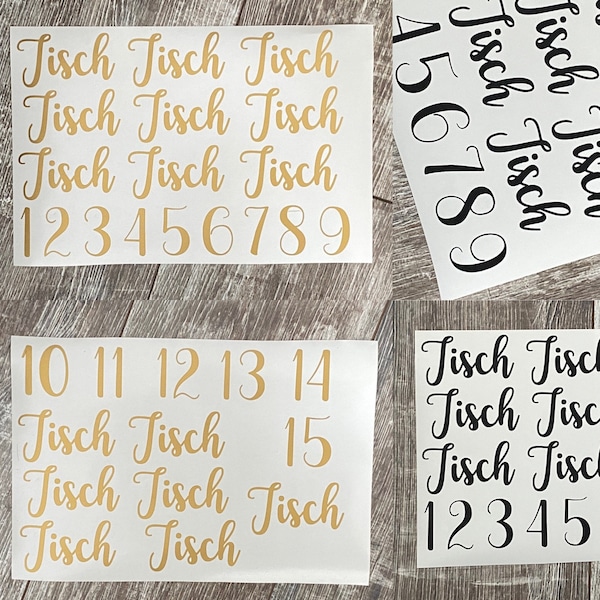 Tisch Tisch Tisch
Tisch Tisch Tisch
Tisch Tisch Tisch
1 2 3 4 5 6 7 8 9
Tisch
Tisch
Tisch
Tisch
Tisch
4 5 6 7 8 9
10 11 12 13 14
Tisch Tisch 15
Tisch Tisch Tisch
Tisch Tisch
Tisch Tisch
Tisch Tisch
Tisch Tisch
1 2 3 4 5